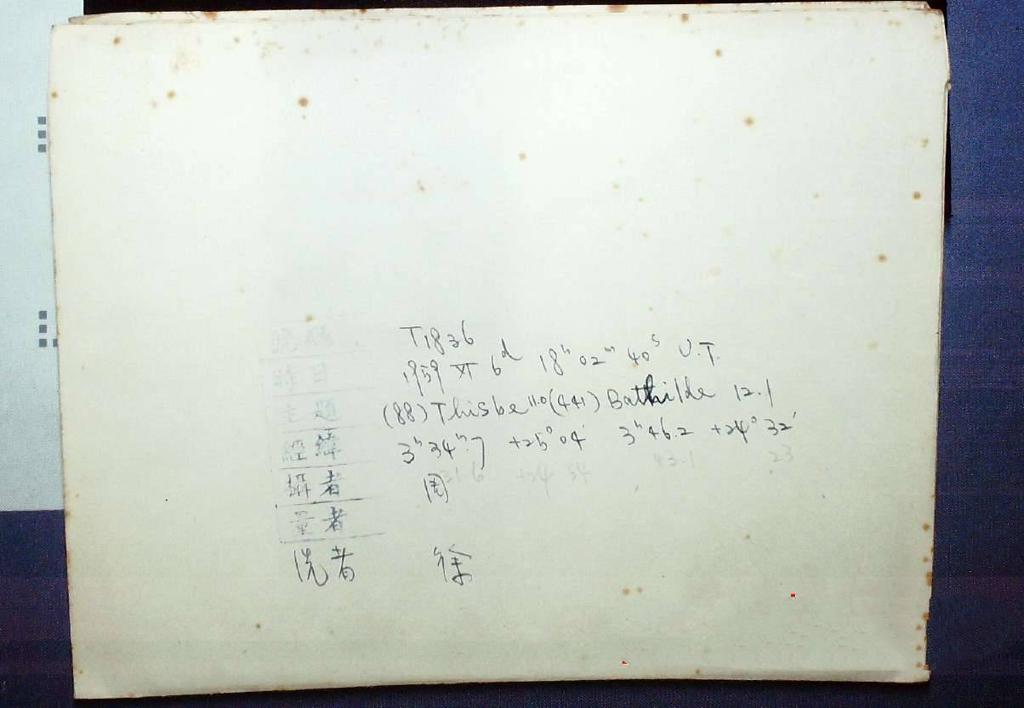 號碼 T1836
時日 1959 XI 6ᵈ 18ʰ 02ᵐ 40ˢ U.T.
主題 (88) Thisbe 11.0 (441) Bathilde 12.1
經緯 3ʰ 34ᵐ.7 +25° 04' 3ʰ 46.2 +24° 32'
31.6 +24 54 43.1 23
攝者 周
量者
洗者 徐